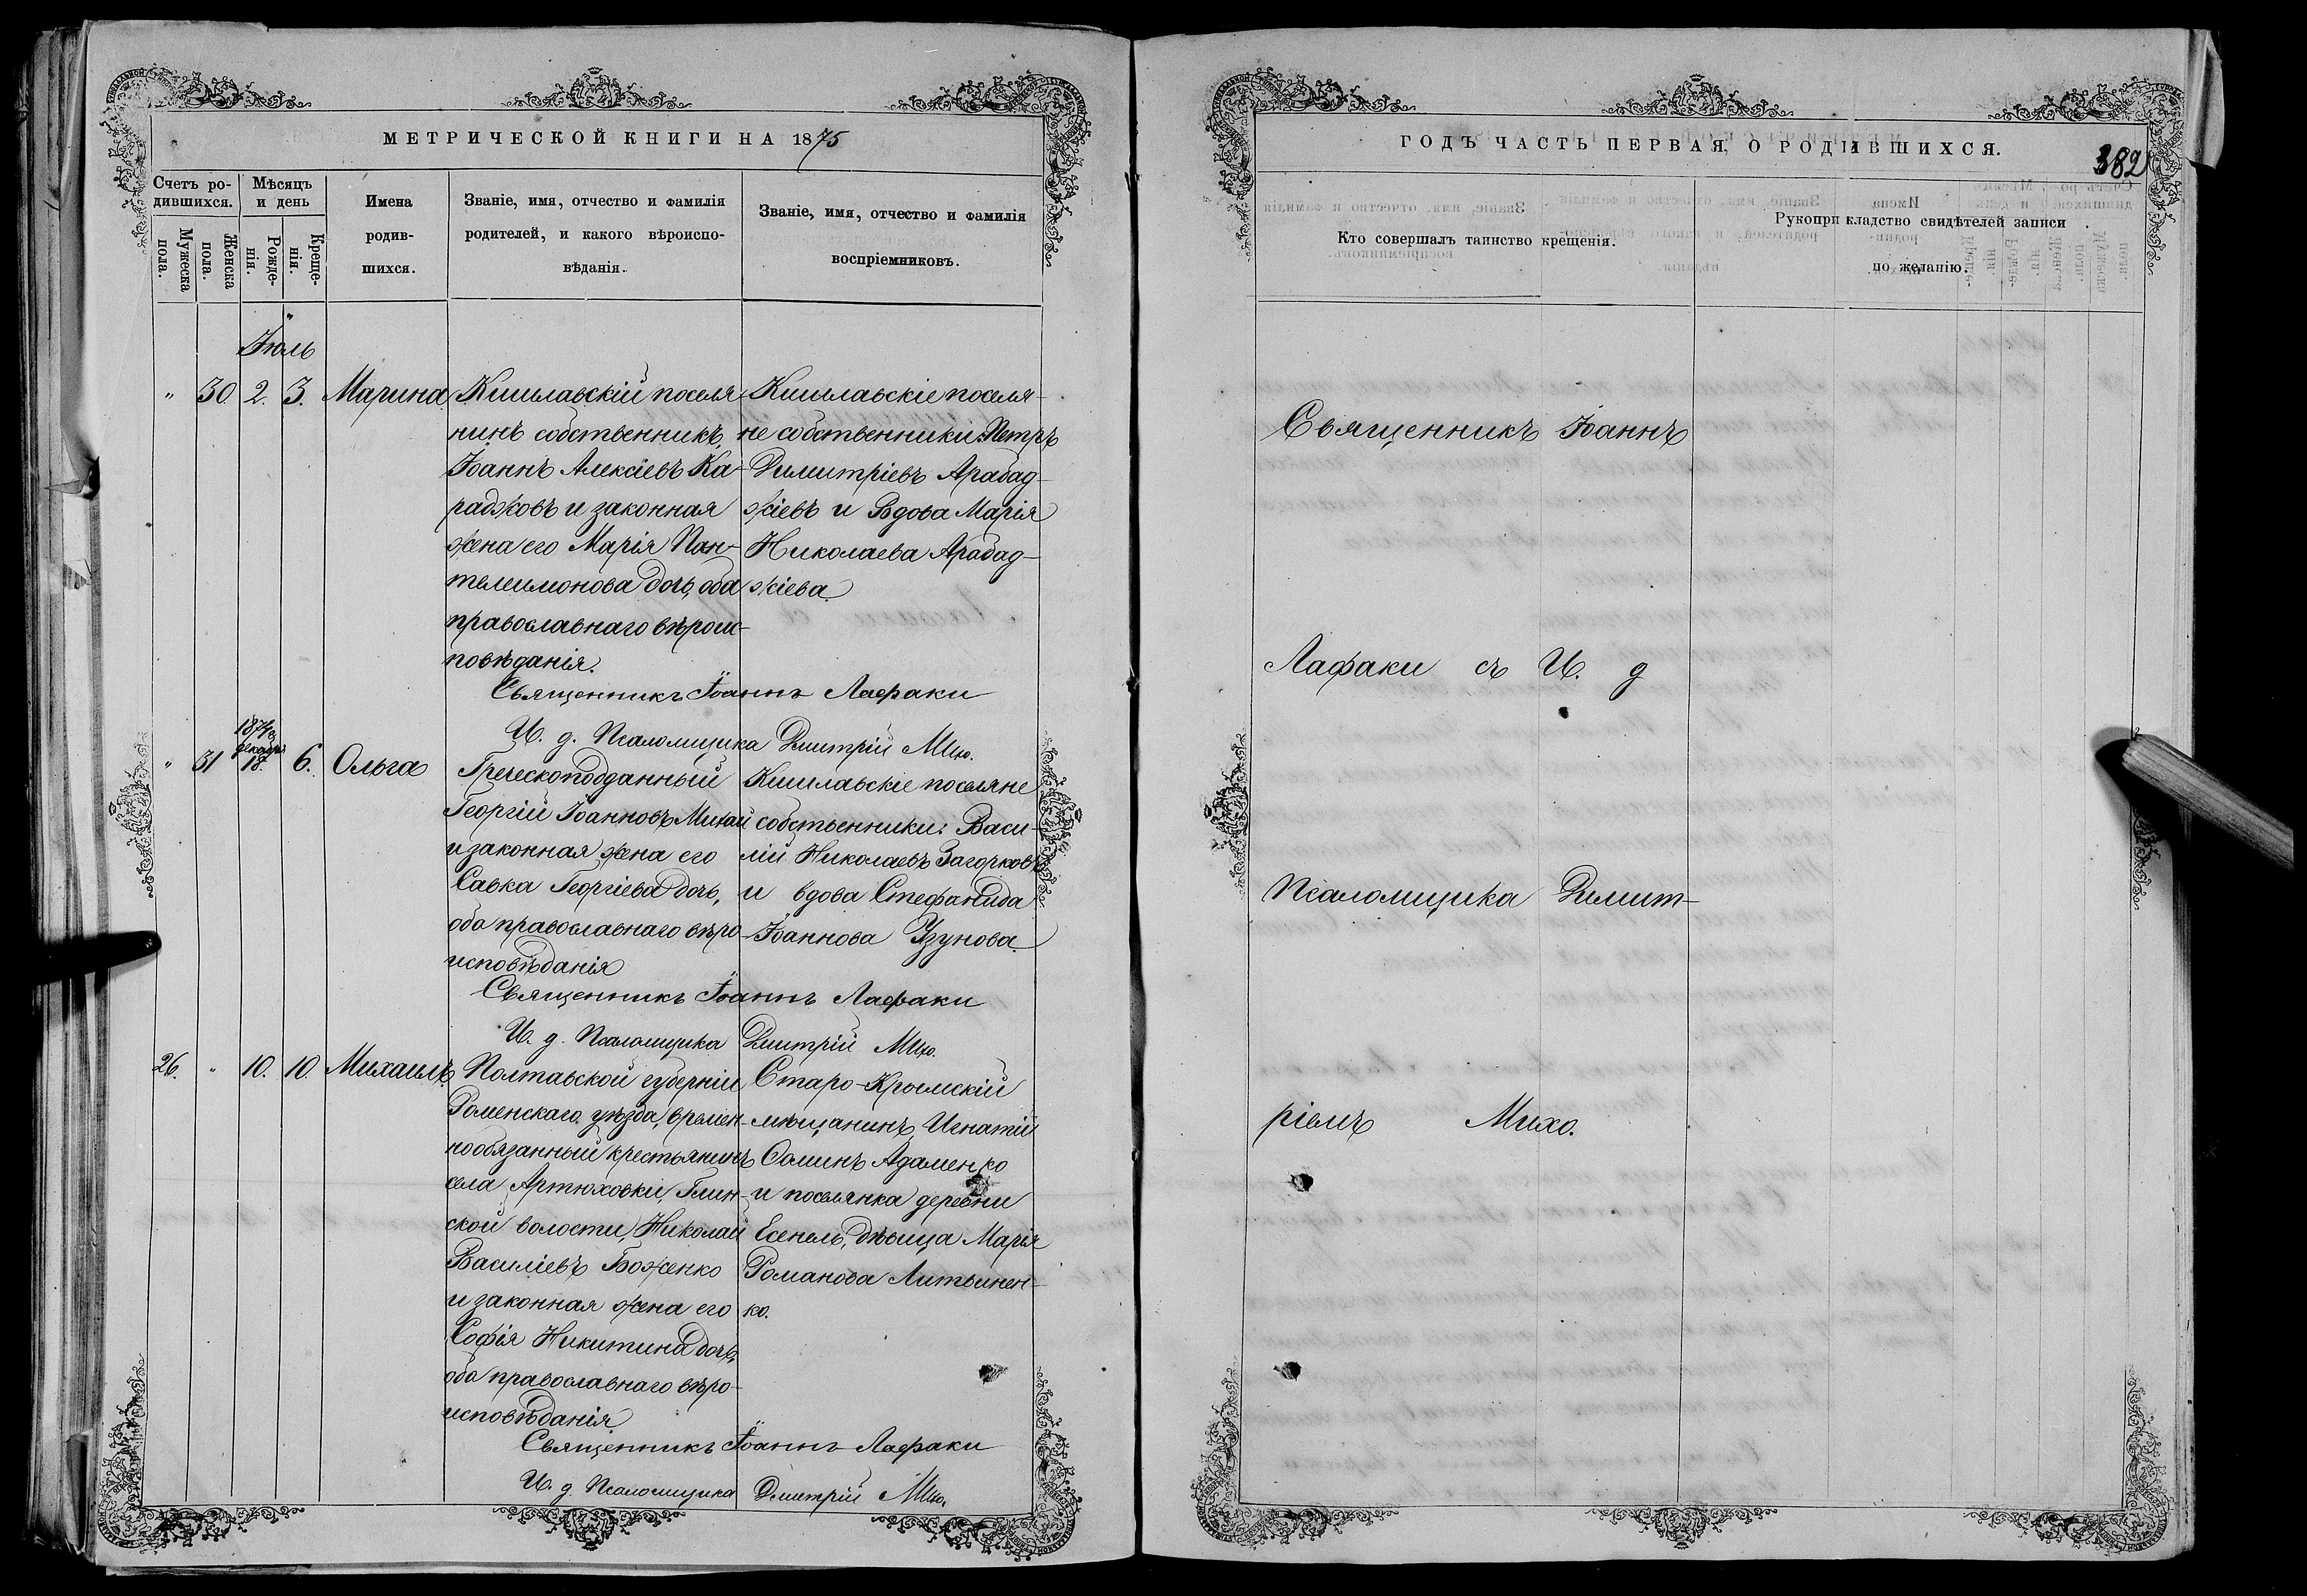 МЕТРИЧЕСКОЙ КНИГИ НА 1875
Счетъ ро-
дившихся.
Мужеска
пола.
Женска
пола.
Мѣсяцъ
и день
Рожде-
нія.
Креще-
нія.
Имена
родив-
шихся.
Званіе, имя, отчество и фамилія
родителей, и какого вѣроиспо-
вѣданія.
Званіе, имя, отчество и фамилія
воспріемниковъ.
Іюль
" 30. 2. 3. Марина.
Кишлавскій поселя-
нинъ собственникъ,
Іоаннъ Алексіевъ Ка-
раджовъ и законная
жена его Марія Пан-
телеимонова дочь, оба
православнаго вѣроис-
повѣданія.
Кишлавскіе поселя-
не собственники: Петръ
Димитріевъ Арабад-
жіевъ и Вдова Марія
Николаева Арабад-
жіева.
Священникъ Іоаннъ Лафаки
И. д. Псаломщика Дмитрій Михо.
" 31 1874 г. декабря 18. 6. Ольга
Греческоподданный
Георгій Іоанновъ Михай
и законная жена его
Савка Георгіева дочь,
оба православнаго вѣро-
исповѣданія
Кишлавскіе поселяне
собственники: Васи-
лій Николаевъ Загорковъ
и вдова Стефанида
Іоаннова Узунова.
Священникъ Іоаннъ Лафаки
И. д. Псаломщика Дмитрій Михо.
26. " 10. 10. Михаилъ
Полтавской губерніи
Роменскаго уѣзда, времен-
нообязанный крестьянинъ
села Артюховки, Глин-
ской волости, Николай
Василіевъ Боженко
и законная жена его
Софія Никитина дочь,
оба православнаго вѣро-
исповѣданія
Старо-Крымскій
мѣщанинъ, Игнатій
Соминъ Адаменко
и поселянка деревни
Есенель, дѣвица Марія
Романова Литвинен-
ко.
Священникъ Іоаннъ Лафаки
И. д. Псаломщика Дмитрій Михо.
ГОДЪ ЧАСТЬ ПЕРВАЯ, О РОДИВШИХСЯ.
382
Кто совершалъ таинство крещенія.
Рукоприкладство свидѣтелей записи
по желанію.
Священникъ Іоаннъ
Лафаки съ И. д
Псаломщика Димит-
ріемъ Михо.